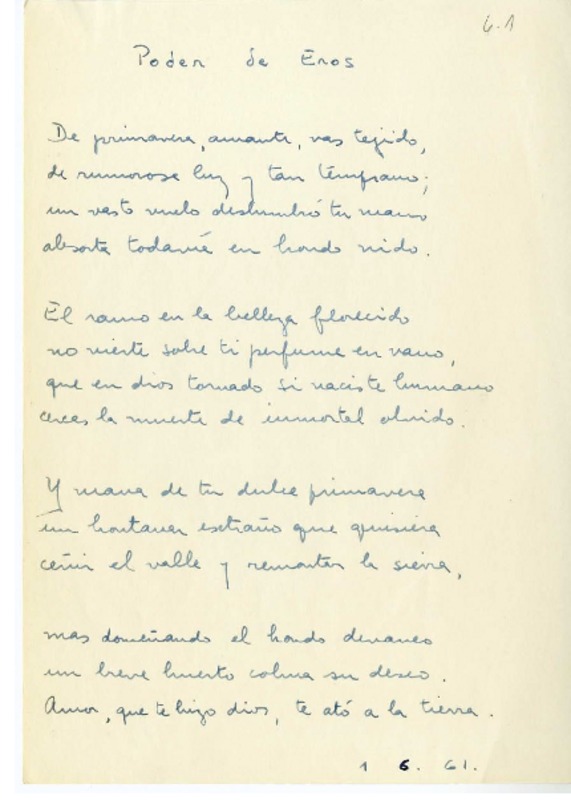 6.1
Poder de Eros
De primavera, amante, vas tejido,
de rumorosa luz y tan temprano;
un vasto vuelo deslumbró tu mano
absorta todavía en hondo nido.
El ramo en la belleza florecido
no vierte sobre ti perfume en vano,
que en dios tornado si naciste humano
creces la muerte de inmortal olvido.
Y mana de tu dulce primavera
un hontanar extraño que quisiera
ceñir el valle y remontar la sierra,
mas domeñando el hondo devaneo
un breve huerto colma su deseo.
Amor, que te hizo dios, te ató a la tierra.
1 6. 61.